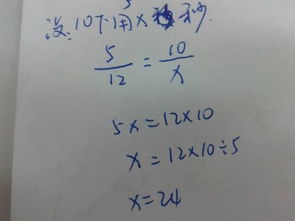 设:10个用x秒.
5/12 = 10/x
5x=12×10
x=12×10÷5
x=24